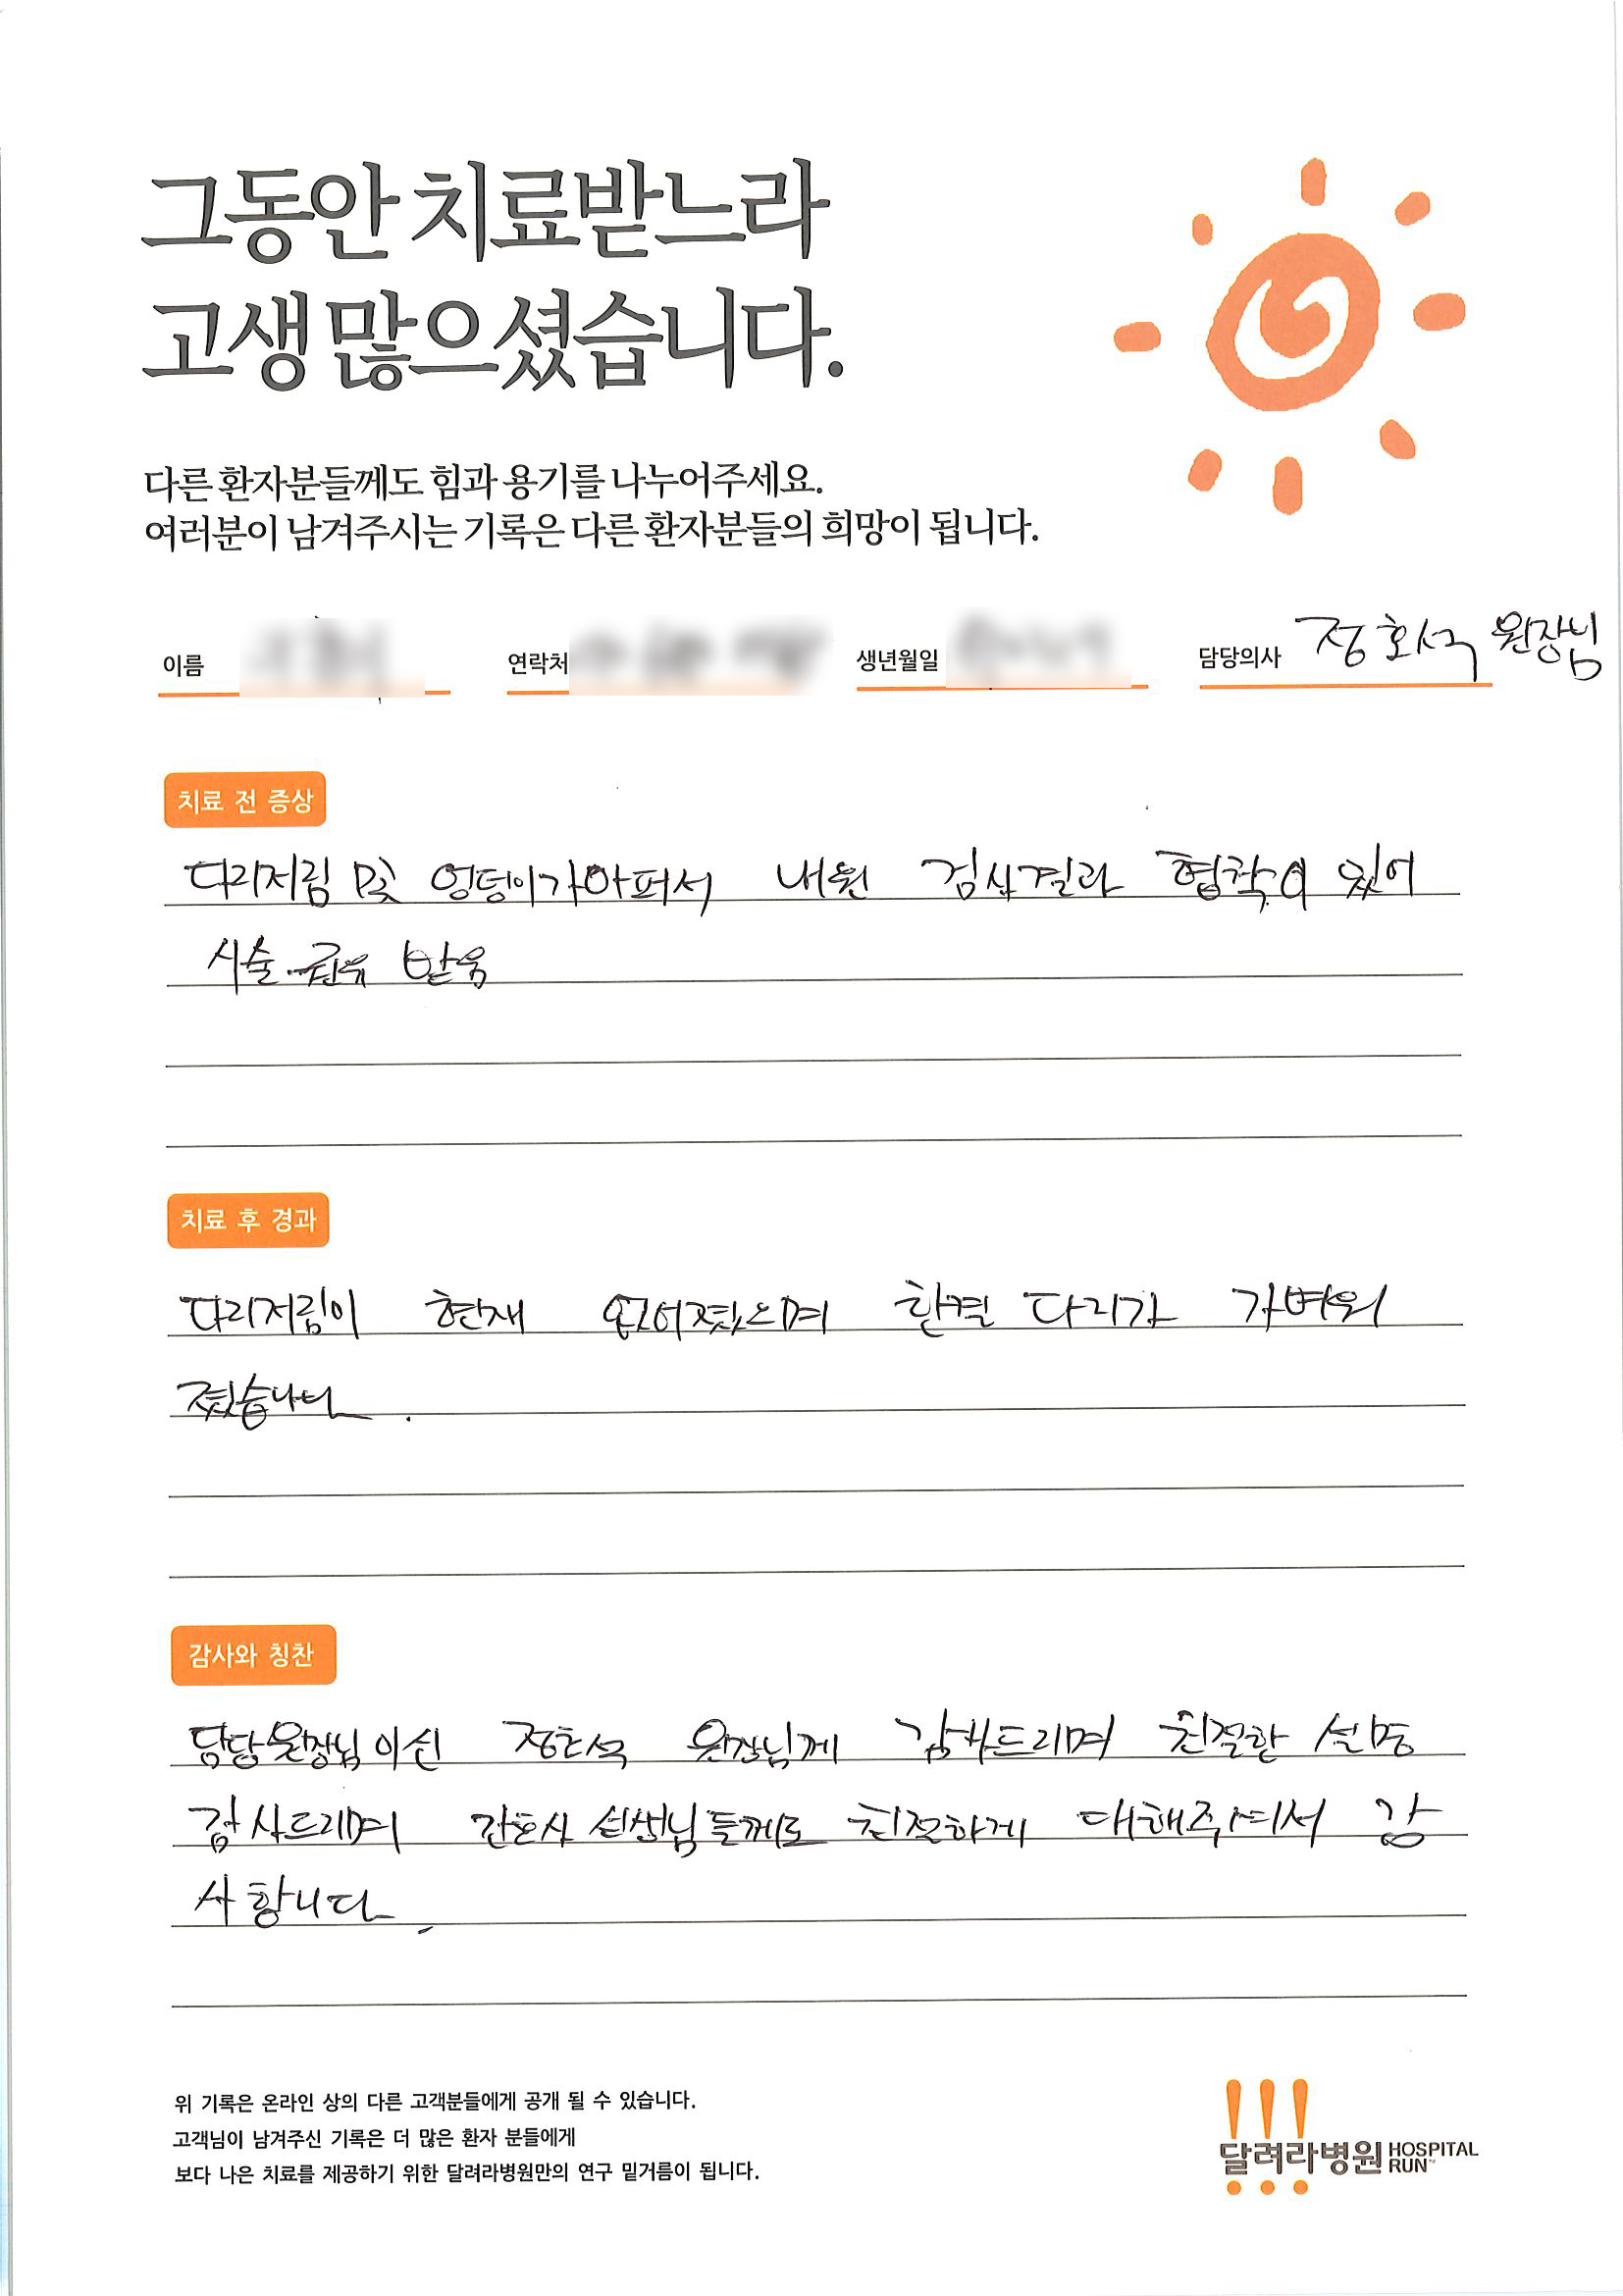 그동안 치료받느라
고생 많으셨습니다.
다른 환자분들께도 힘과 용기를 나누어주세요.
여러분이 남겨주시는 기록은 다른 환자분들의 희망이 됩니다.
이름 연락처 생년월일 담당의사 정호석 원장님
치료 전 증상
다리저림 및 엉덩이가아퍼서 내원 검사결과 협착이 있어
시술 권유 받음
치료 후 경과
다리저림이 현재 없어졌으며 한결 다리가 가벼워
졌습니다.
감사와 칭찬
담당원장님이신 정호석 원장님께 감사드리며 친절한 설명
감사드리며 간호사 선생님들께도 친절하게 대해주셔서 감
사합니다.
위 기록은 온라인 상의 다른 고객분들에게 공개 될 수 있습니다.
고객님이 남겨주신 기록은 더 많은 환자 분들에게
보다 나은 치료를 제공하기 위한 달려라병원만의 연구 밑거름이 됩니다.
달려라병원 HOSPITAL
RUN™